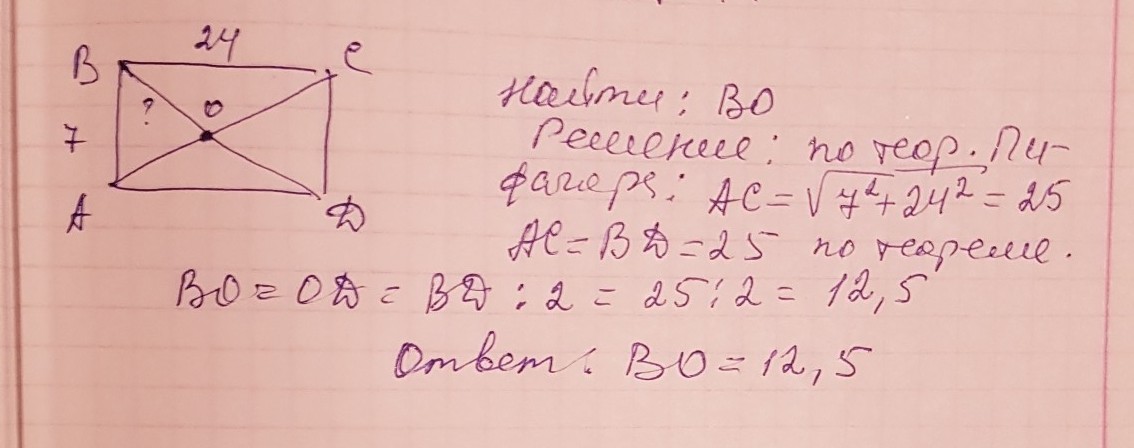 24
B C
? O
7
A D
Найти: BO
Решение: по теор. Пи-
фагора: AC = √7²+24² = 25
AC = BD = 25 по теореме.
BO = OD = BD : 2 = 25 : 2 = 12,5
Ответ: BO = 12,5